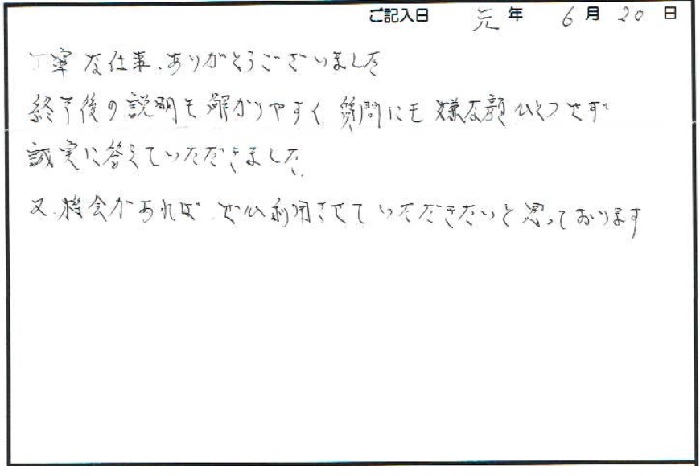 ご記入日 元年 6月 20日
丁寧な仕事、ありがとうございました
終了後の説明も解かりやすく 質問にも嫌な顔ひとつせず
誠実に答えていただきました。
又、機会があれば、ぜひ利用させていただきたいと思っております